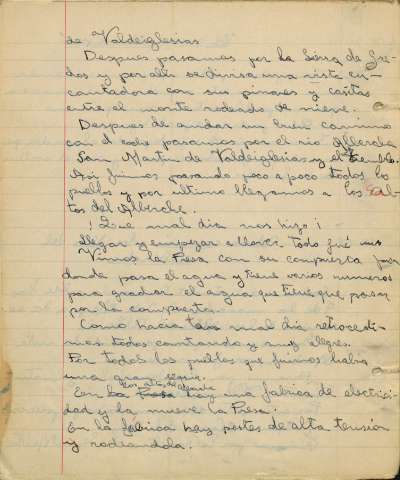 de Valdeiglesias
Despues pasamos por la Sierra de Gre-
dos y por alli se divisa una vista en-
cantadora con sus pinares y casitas
entre el monte rodeado de nieve.
Despues de andar un buen camino
con el coche pasamos por el rio Alberche
San Martin de Valdeiglesias y el Tiemblo.
Asi fuimos pasando poco a poco todos los
pueblos y por ultimo llegamos a los Sal-
tos del Alberche.
! Que mal dia nos hizo ¡
llegar y empezar a llover. Todo fué uno
Vimos la Presa con su compuerta por
donde pasa el agua y tiene varios numeros
para graduar el agua que tiene que pasar
por la compuerta.
Como hacia tan mal dia retrocedi-
mos todos cantando y muy alegres.
Por todos los pueblos que fuimos habia
una gran sequia.
los altos de Alberche
En la Presa hay una fabrica de electrici-
dad y la mueve la Presa.
En la fabrica hay postes de alta tension
y rodeandola.